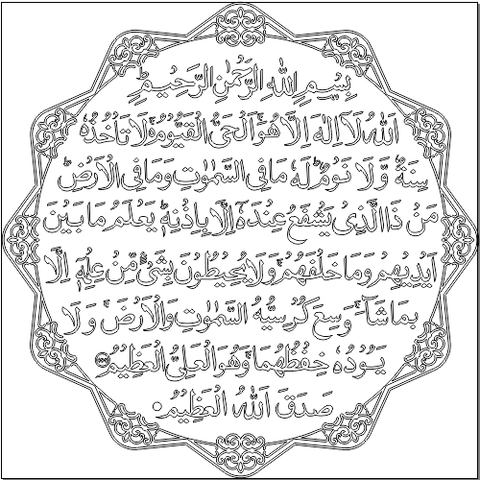 بِسْمِ اللهِ الرَّحْمٰنِ الرَّحِيْمِ
اَللهُ لَا اِلٰهَ اِلَّا هُوَ اَلْحَىُّ الْقَيُّوْمُ لَا تَأْخُذُهٗ
سِنَةٌ وَّلَا نَوْمٌ لَهٗ مَا فِى السَّمٰوٰتِ وَمَا فِى الْاَرْضِ
مَنْ ذَا الَّذِىْ يَشْفَعُ عِنْدَهٗ اِلَّا بِاِذْنِهٖ يَعْلَمُ مَا بَيْنَ
اَيْدِيْهِمْ وَمَا خَلْفَهُمْ وَلَا يُحِيْطُوْنَ بِشَىْءٍ مِّنْ عِلْمِهٖ اِلَّا
بِمَا شَآءَ وَسِعَ كُرْسِيُّهُ السَّمٰوٰتِ وَالْاَرْضَ وَلَا
يَـُٔوْدُهٗ حِفْظُهُمَا وَهُوَ الْعَلِىُّ الْعَظِيْمُ
صَدَقَ اللهُ الْعَظِيْمُ